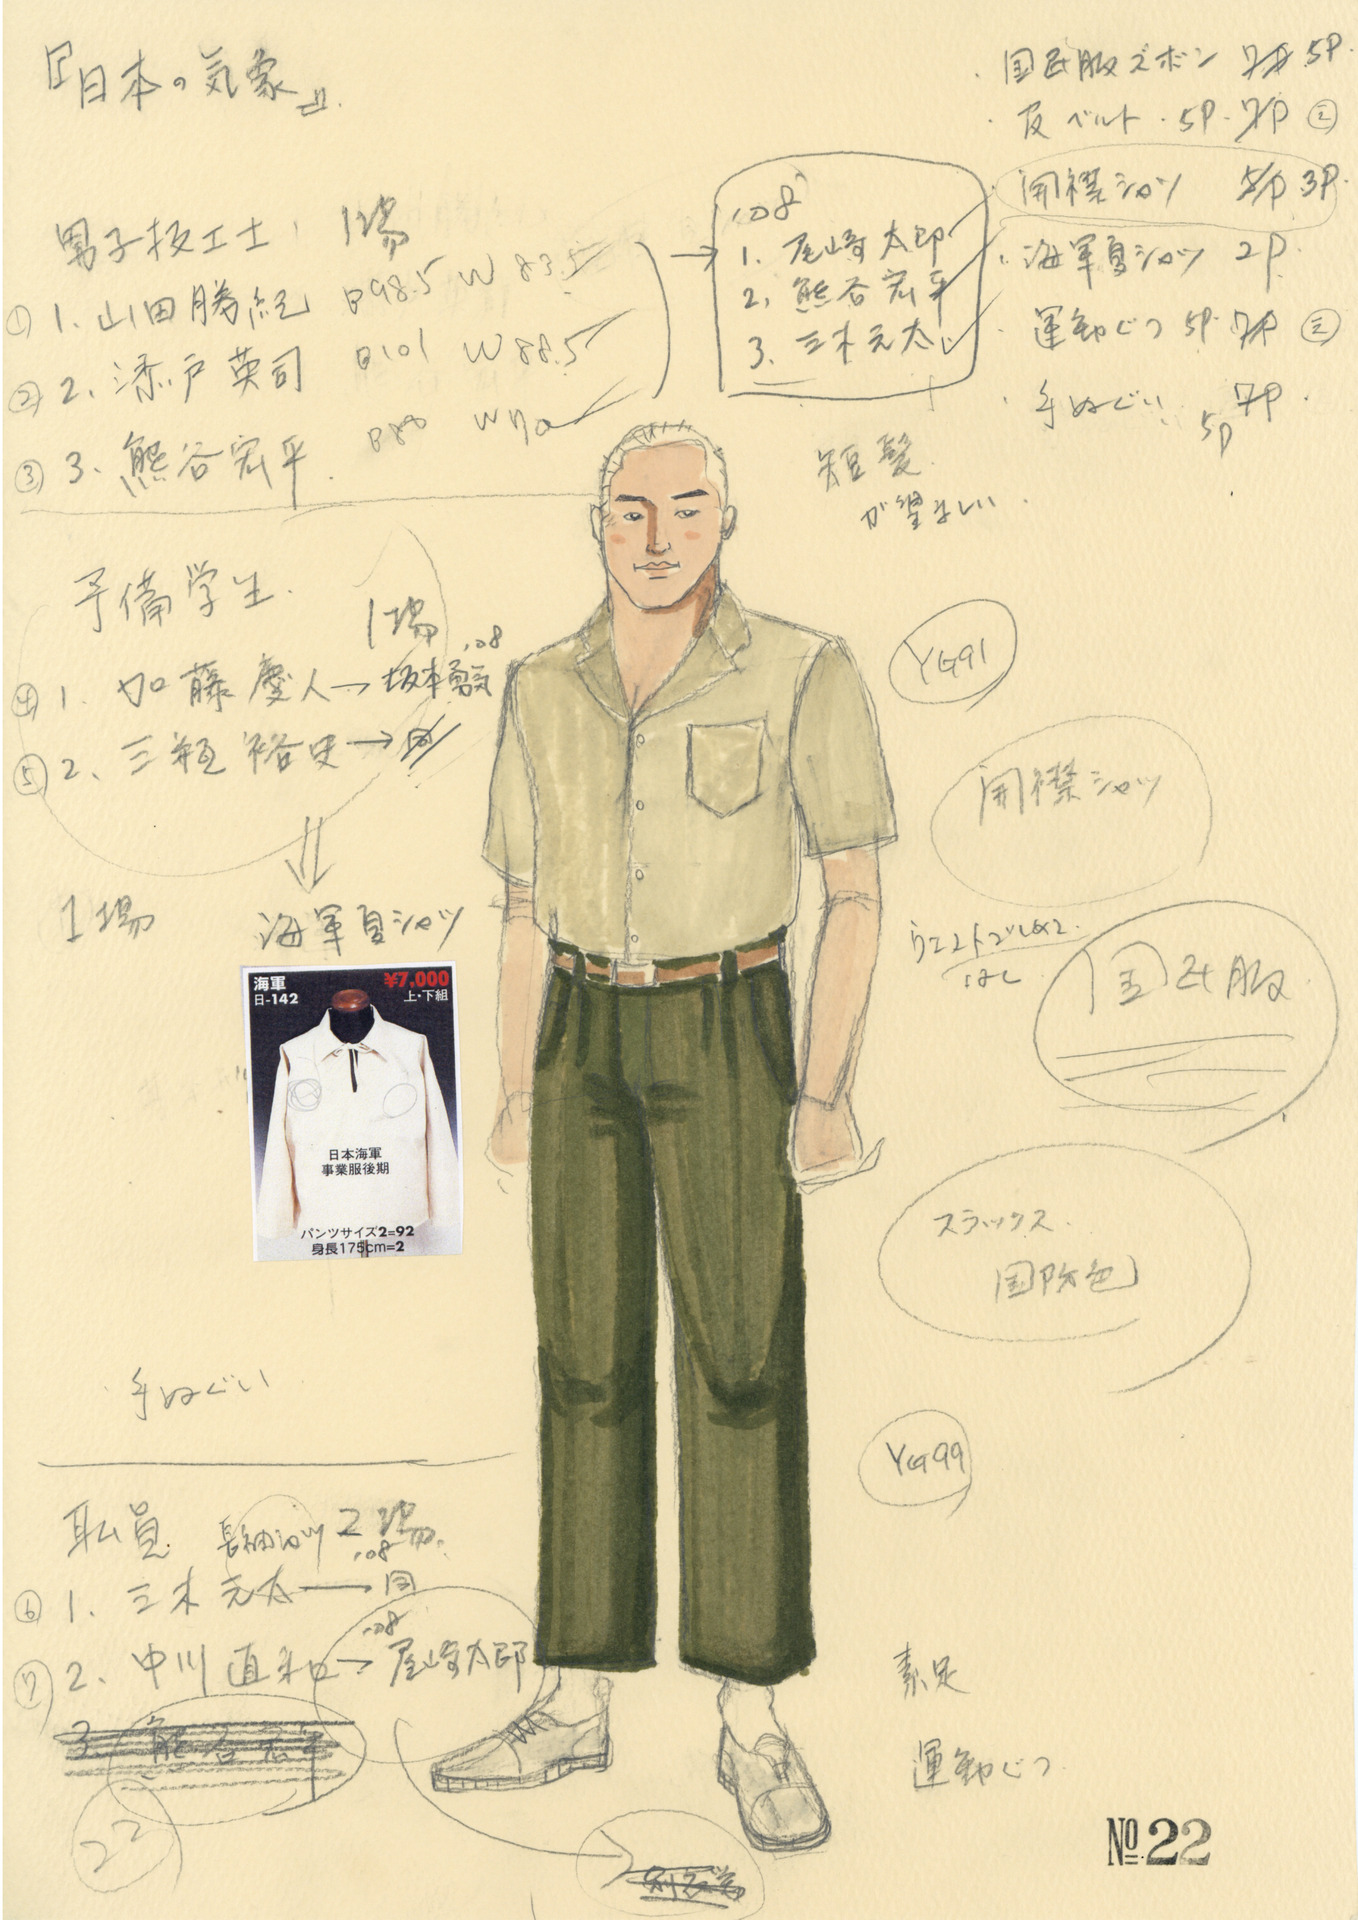 『日本の気象』
・国民服ズボン 7p 5P.
・皮ベルト・5P・7P ㊁
・開襟シャツ 5p 3P.
・海軍夏シャツ 2P.
・運動ぐつ 5P・7P ㊁
・手ぬぐい 7P.
5P
男子技工士 1場
① 1. 山田勝紀 B98.5 W 83.5
② 2. 添戸英司 B101 W88.5
③ 3. 熊谷宏平
'08
1. 尾崎太郎
2. 熊谷宏平
3. 三木元太
短髪
が望ましい
予備学生
1場
④ 1. 加藤慶人→坂本勇気 '08
⑤ 2. 三瓶裕史→
1場 海軍夏シャツ
海軍 ¥7,000
日-142 上・下組
日本海軍
事業服後期
パンツサイズ2=92
身長175cm=2
YG91
開襟シャツ
国民服
スラックス
国防色
YG99
手ぬぐい
職員 長袖シャツ 2場
⑥ 1. 三木元太→同 '08
⑦ 2. 中川直和→尾崎太郎 '08
3. 熊谷宏平
22
素足
運動ぐつ
No 22